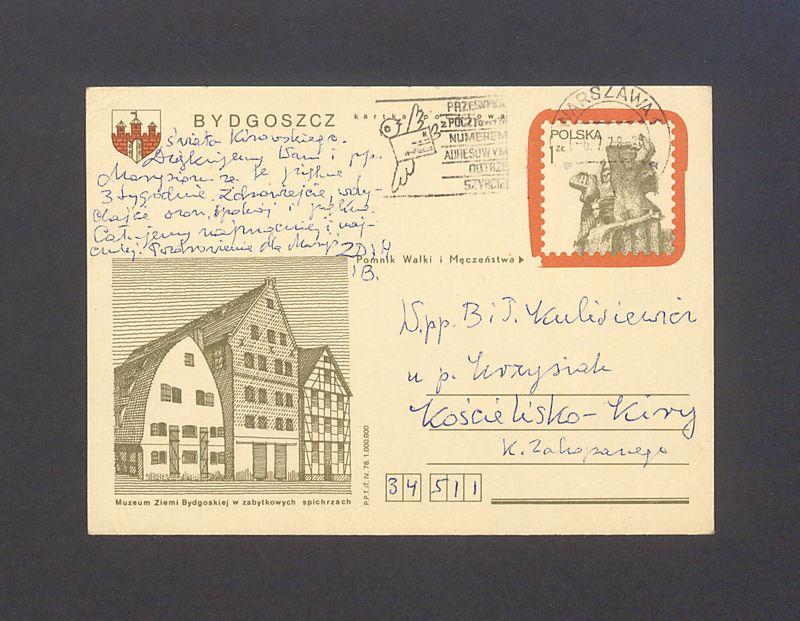 BYDGOSZCZ
kartka pocztowa
świata Kirowskiego.
Dziękujemy Wam i pp.
Marysiom za te piękne
3 tygodnie. Zdrowiejcie, wdy-
chajcie ozon, spokój i piękno.
Całujemy najmocniej i naj-
czulej. Pozdrowienia dla Marysi
PRZESYŁKA
Z POCZTOWYM
NUMEREM
ADRESOWYM
DOTRZE
SZYBCIEJ
WARSZAWA
POLSKA
1 ZŁ
Pomnik Walki i Męczeństwa
W.pp. B i T. Kulisiewicz
u p. Krzysiak
Kościelisko-Kiry
k. Zakopanego
34 511
P.P.T.iT. IV. 78. 1.000.000
Muzeum Ziemi Bydgoskiej w zabytkowych spichrzach